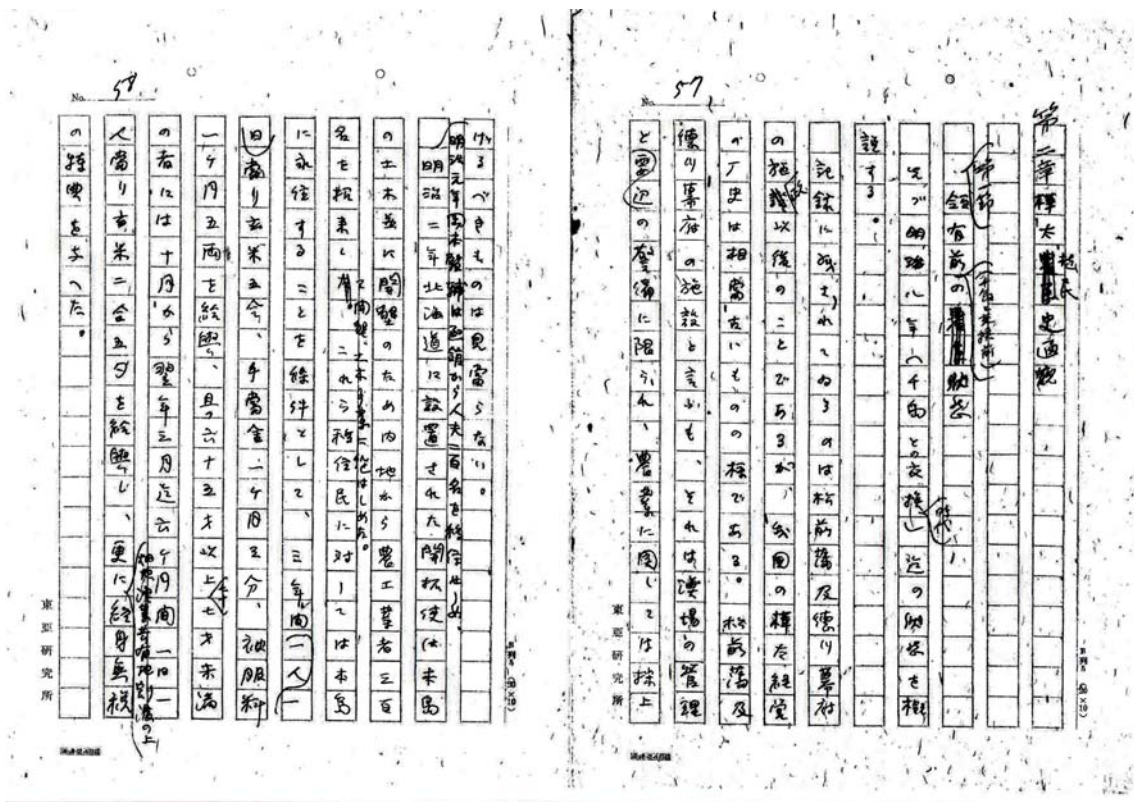 No. 57
第二章 樺太植民史通観
第一節
領有前の
先づ明治八年(千島との交換)迄の状态を概
説する。
記録に残されてゐるのは松前藩及徳川幕府
の施政以後のことであるが、我国の樺太経営
の歴史は相当古いものの様である。松前藩及
徳川幕府の施設と言ふも、それは漁場の管理
と辺の警備に限られ、農業に関しては採上
東亜研究所
No. 58
げるべきものは見当らない。
明治元年岡本監輔は函館から人夫二百名を
明治二年北海道に設置された開拓使は本島
の土木並に開墾のため内地から農工業者三百
名を招来して開墾、土木事業に従はしめた。これら移住民に対しては本島
に永住することを條件として、三年間一人一
日当り玄米五合、手当金一ヶ月五分、被服料
一ヶ月五両を給與し、且つ六十五才以上七才未満
の者には十月から翌年三月迄六ヶ月間一日一
人当り玄米二合五夕を給與し、更に
終身無税
の特典を与へた。
東亜研究所